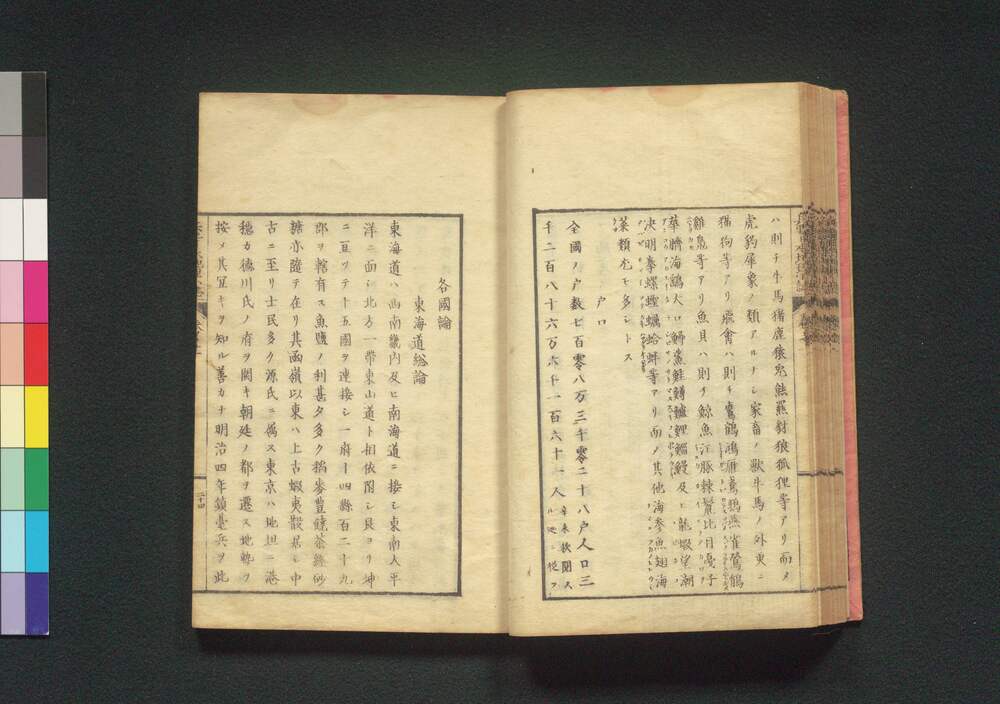 ハ則チ牛馬猪鹿猿兎熊羆豺狼狐狸等アリ而メ
虎豹犀象ノ類アルナシ家畜ノ獣牛馬ノ外更ニ
猫狗等アリ禽ハ則チ鷹鶴鴻雁鳶鴉燕雀鶯鶴
雞鳧等アリ魚貝ハ則チ鯨魚江豚棘鬣比目
海鷂大口鰤鱸鯉鰻及ヒ龍蝦望潮
决明拳螺蠣蛤蚌等アリ而メ其他海参魚翅海
菜類尤モ多シトス
戸口
全國ノ戸数七百零八万三千零二十八戸人口三
千二百八十六万六千一百六十一人
各國論
東海道総論
東海道ハ西南畿内及ヒ南海道ニ接シ東南大平
洋ニ面シ北方一帶東山道ト相依附シ艮ヨリ坤
ニ亘ツテ十五國ヲ連接シ一府十四縣百二十九
郡ヲ轄有ス魚鹽ノ利甚タ多ク稻麥豊饒茶絲砂
糖亦隨テ在リ其函嶺以東ハ上古蝦夷散居シ中
古ニ至リ士民多ク源氏ニ属ス東京ハ地坦ニ港
穏カ徳川氏ノ府ヲ開キ朝廷ノ都ヲ遷ス地勢ヲ
按メ其冝キヲ知ル善カナ明治四年鎮臺兵ヲ此
二十四